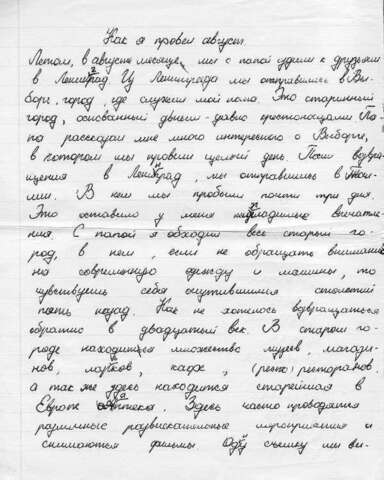 Как я провел август
Летом, в августе месяце, мы с папой ездили к друзьям
в Ленинград. Из Ленинграда мы отправились в Вы-
борг, город, где служил мой папа. Это старинный
город, основанный давным-давно крестоносцами. Па-
па рассказал мне много интересного о Выборге,
в котором мы провели целый день. После возвра-
щения в Ленинград, мы отправились в Тал-
лин. В нем мы пробыли почти три дня.
Это оставило у меня впечатле-
ния. С папой я обходил весь старый го-
род, в нем, если не обращать внимание
на современную одежду и машины, то
чувствуешь себя очутившимся столетий
пять назад. Как не хотелось возвращаться
обратно в двадцатый век. В старом го-
роде находится множество музеев, магази-
нов, лавков, кафе, (ресто) ресторанов.
а так же здесь находится старейшая в
Европе аптека. Здесь часто проводятся
различные развлекательные мероприятия и
снимаются фильмы. Одну съемку мы ви-